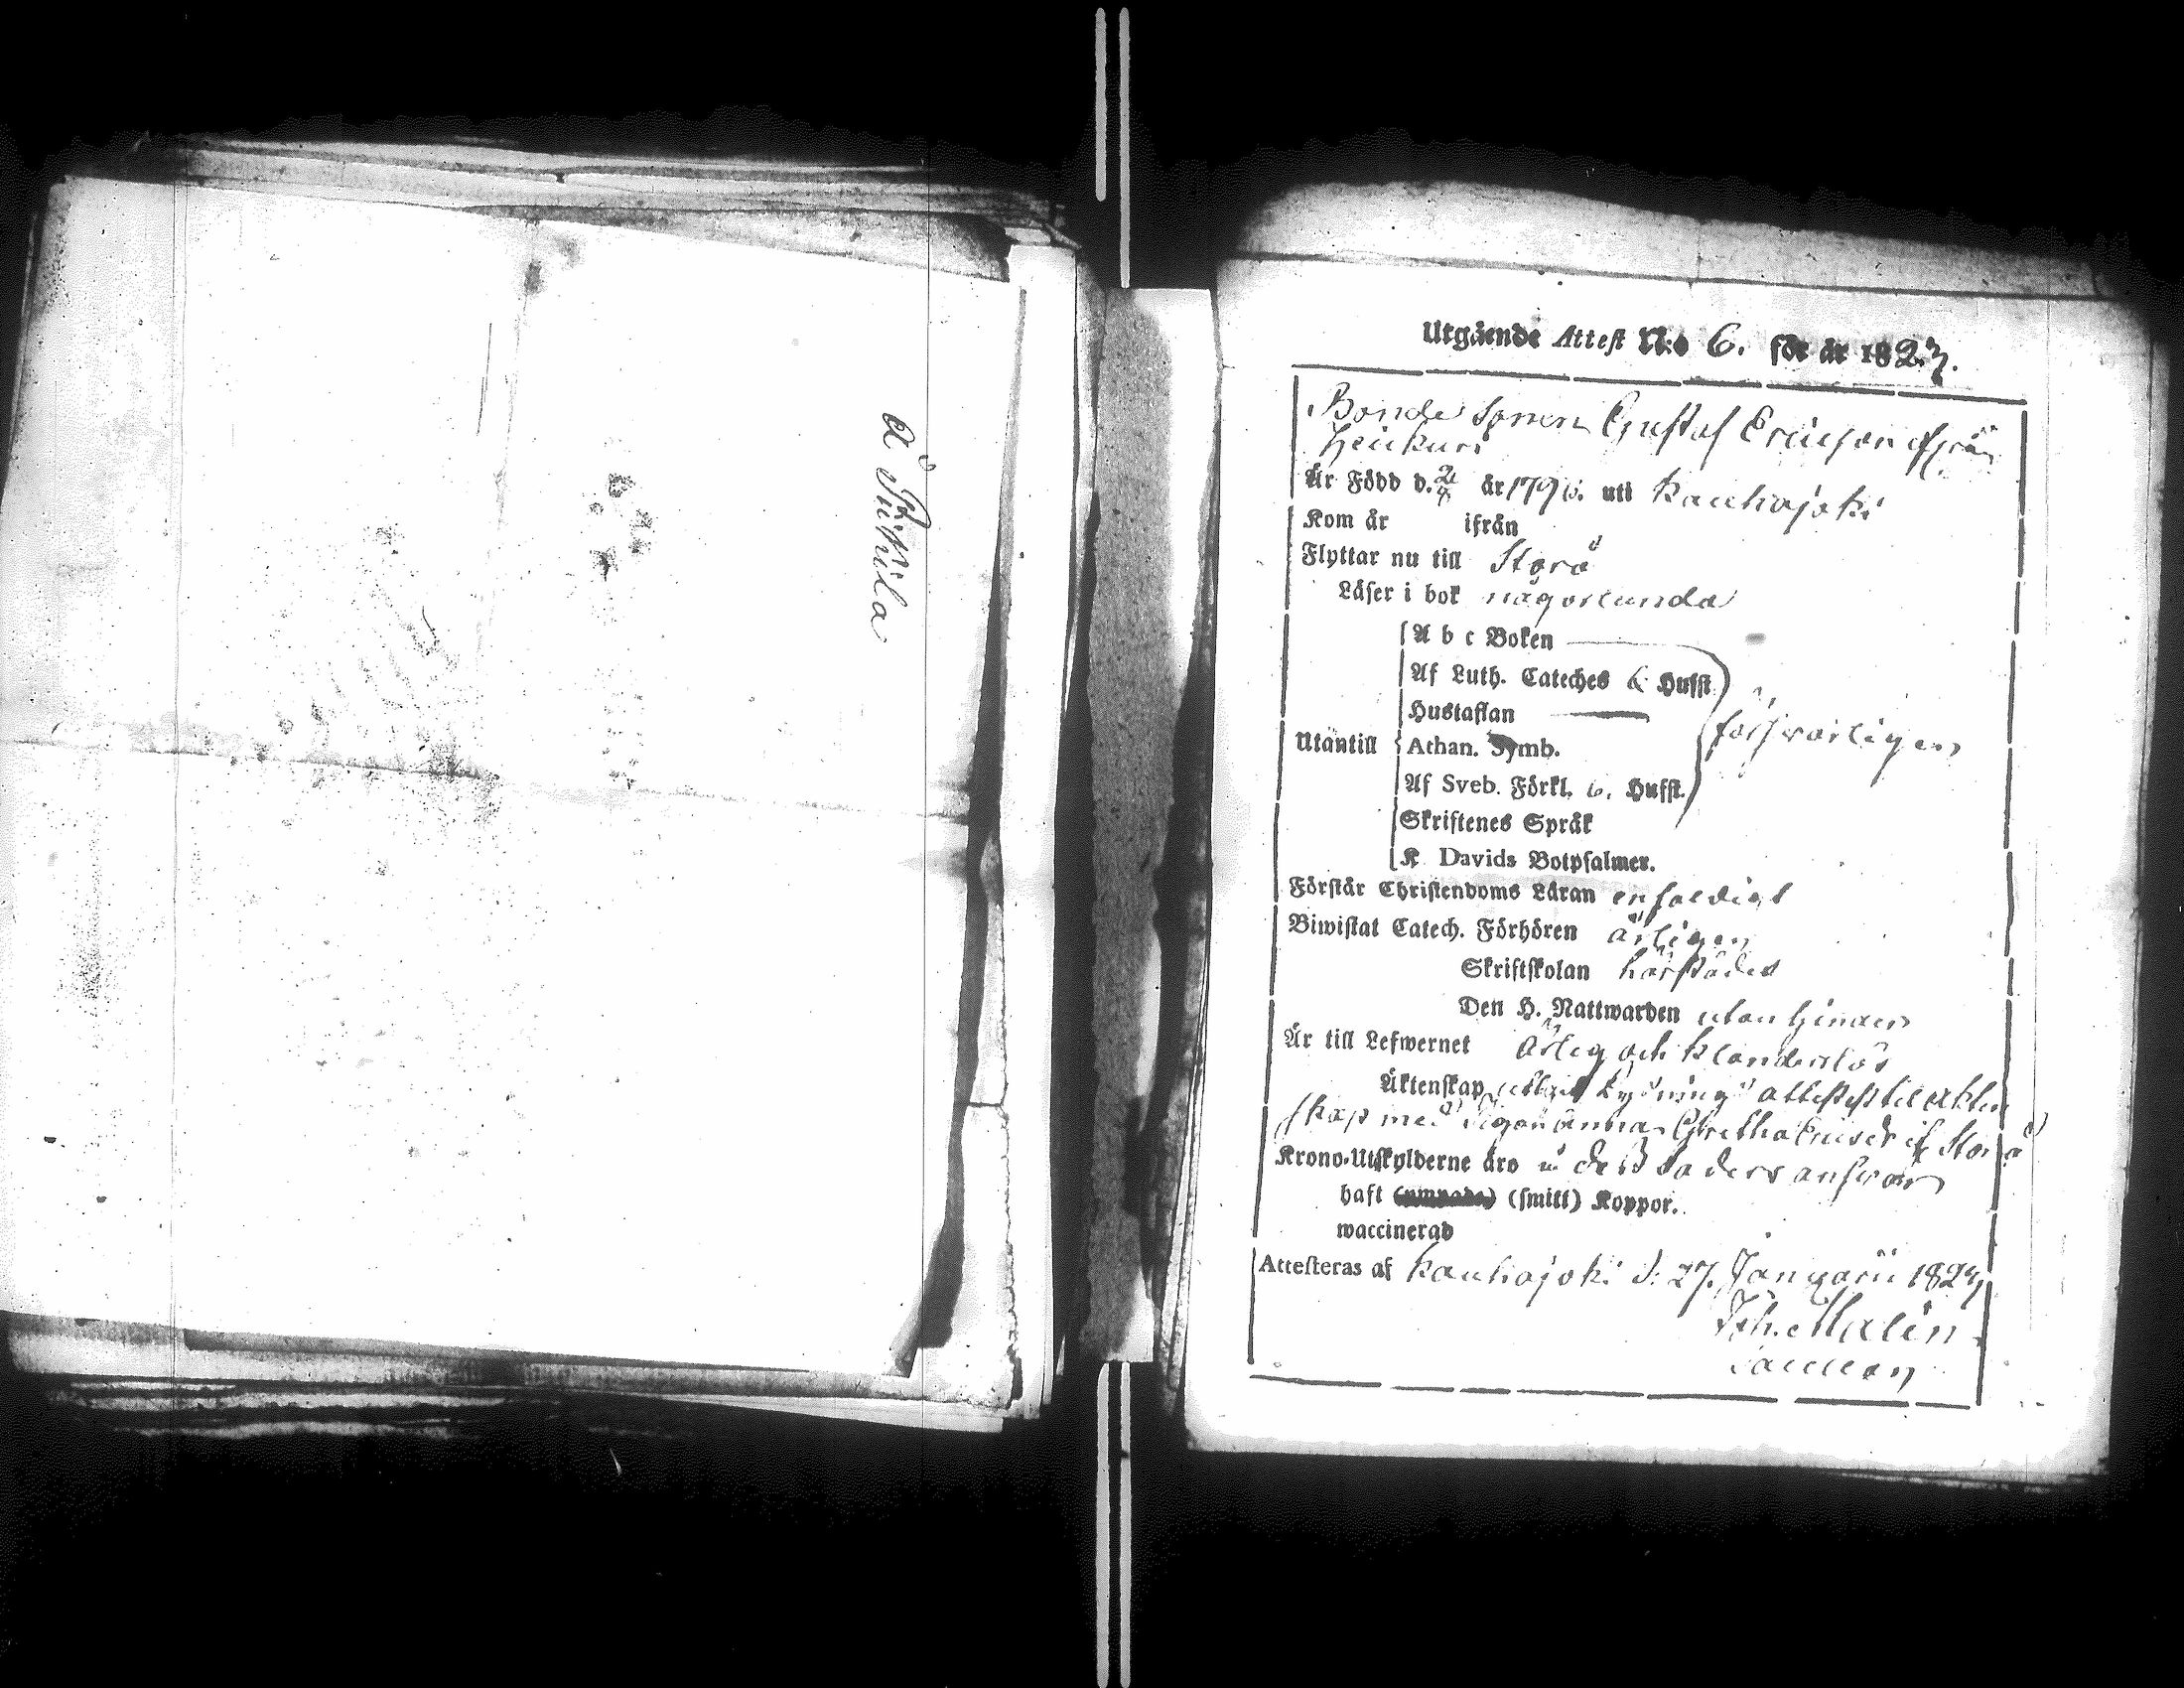 å Pitkila
Utgående Attest N:o 6. för år 1827.
Bonde Sonen Gustaf Ericson ifrån
Heikuri
Är Född d. år 179 uti Kauhajoki
Kom år ifrån
Flyttar nu till Storå
Läser i bok någorlunda
A b c Boken
Af Luth. Cateches 6 Hufst.
Hustaflan
försvarligen
Utantill Athan. Symb.
Af Sveb. Förkl. 6. Hufst.
Skriftenes Språk
K Davids Botpsalmer.
Förstår Christendoms Läran enfaldigt
Biwistat Catech. Förhören årligen
Skriftskolan härstädes
Den H. Nattwarden utan hinder
Är till Lefwernet ärlig och klanderlös
Äktenskap Lysning attest til Äkten
skap med Pigan Anna Gretha Ericsdr if Storå
Krono-Utskylderne äro u dess faders answar
haft (smitt) Koppor.
waccinerad
Attesteras af Kauhajoki d. 27. Januarii 1827
Joh. Malin
Sacellan